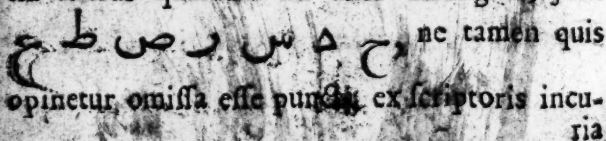 ح د س ر ص ط ع, ne tamen quis
opinetur omiſſa eſſe puncta ex ſcriptoris incu-
ria